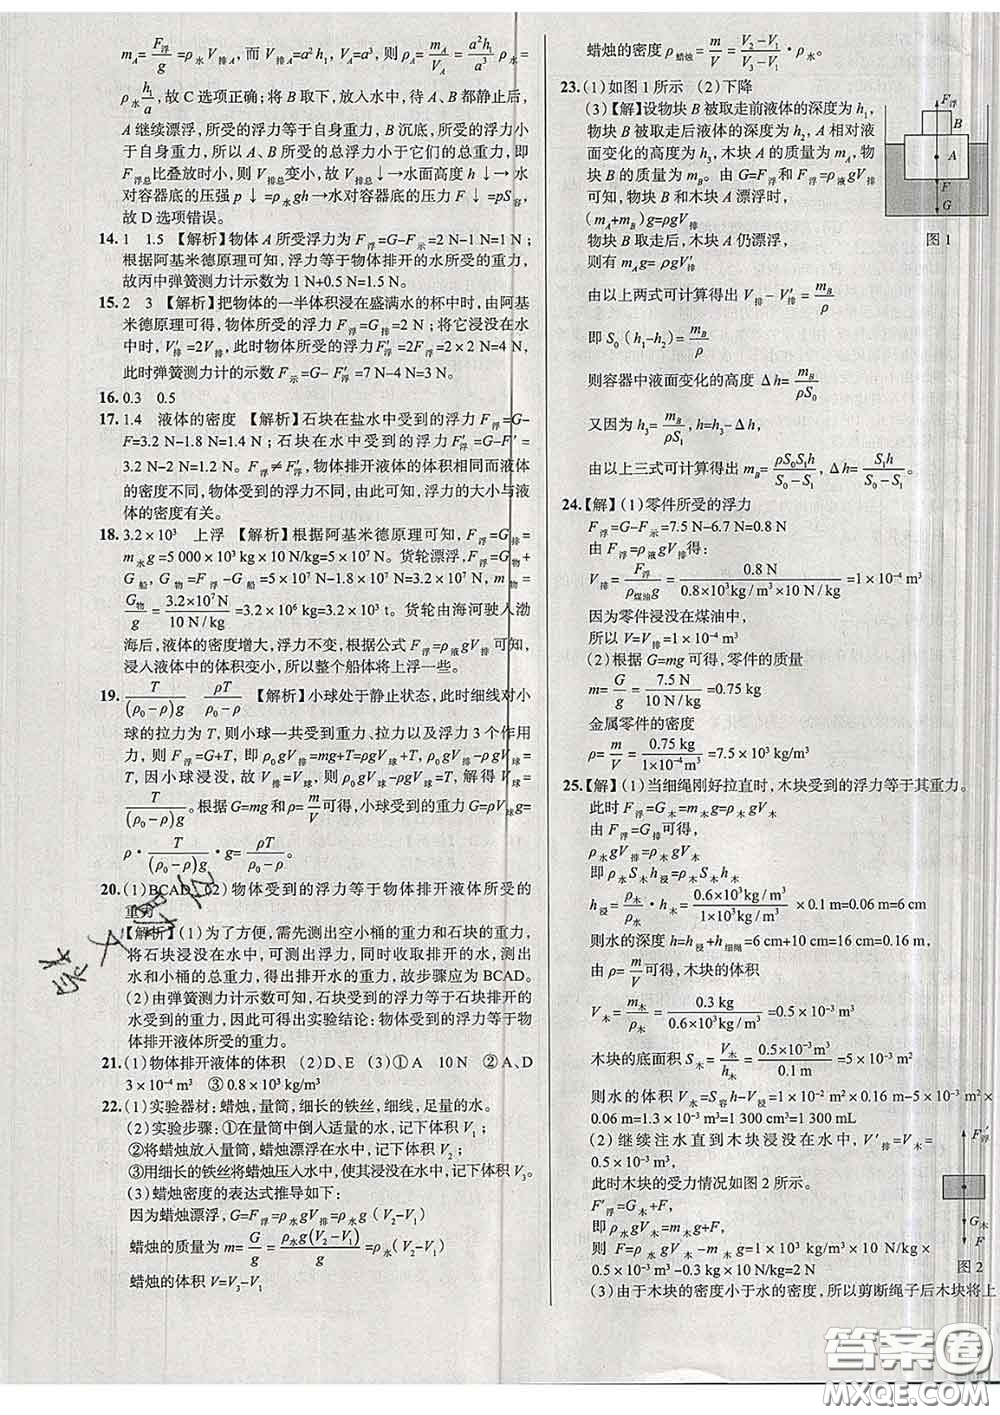 m_A=F浮/g=ρ水V排A，而 V排A=a²h₁，V_A=a³，则 ρ=m_A/V_A=a²h₁/a³ ρ水=
ρ水 h₁/a，故 C 选项正确；将 B 取下，放入水中，待 A、B 都静止后，
A 继续漂浮，所受的浮力等于自身重力，B 沉底，所受的浮力小
于自身重力，所以 A、B 所受的总浮力小于它们的总重力，即
F浮总比叠放时小，则 V排总变小，故 V排总↓→水面高度 h↓→水
对容器底的压强 p↓=ρ水gh→水对容器底的压力 F↓=pS容，
故 D 选项错误。
14.1 1.5 【解析】物体 A 所受浮力为 F浮=G-F示=2 N-1 N=1 N；
根据阿基米德原理可知，浮力等于物体排开的水所受的重力，
故丙中弹簧测力计示数为 1 N+0.5 N=1.5 N。
15.2 3 【解析】把物体的一半体积浸在盛满水的杯中时，由阿基
米德原理可得，物体所受的浮力 F浮=G排=2 N；将它浸没在水
中时，V′排=2V排，此时物体所受的浮力F′浮=2F浮=2×2 N=4 N，
此时弹簧测力计的示数 F示=G-F′浮=7 N-4 N=3 N。
16.0.3 0.5
17.1.4 液体的密度 【解析】石块在盐水中受到的浮力 F浮=G-
F=3.2 N-1.8 N=1.4 N；石块在水中受到的浮力 F′浮=G-F′=
3.2 N-2 N=1.2 N。F浮≠F′浮，物体排开液体的体积相同而液体
的密度不同，物体受到的浮力不同，由此可知，浮力的大小与液
体的密度有关。
18.3.2×10³ 上浮 【解析】根据阿基米德原理可知，F浮=G排=
m水g=5 000×10³ kg×10 N/kg=5×10⁷ N。货轮漂浮，F浮=G物+
G船，G物=F浮-G船=5×10⁷ N-1.8×10⁷ N=3.2×10⁷ N，m物=
G物/g=3.2×10⁷ N/10 N/kg=3.2×10⁶ kg=3.2×10³ t。货轮由海河驶入渤
海后，液体的密度增大，浮力不变，根据公式 F浮=ρ液gV排可知，
浸入液体中的体积变小，所以整个船体将上浮一些。
19. T/(ρ₀-ρ)g ρT/ρ₀-ρ 【解析】小球处于静止状态，此时细线对小
球的拉力为 T，则小球一共受到重力、拉力以及浮力 3 个作用
力，则 F浮=G+T，即 ρ₀gV排=mg+T=ρgV球+T，ρ₀gV排-ρgV球=
T，因小球浸没，故 V排=V球，所以 ρ₀gV球-ρgV球=T，解得 V球=
T/(ρ₀-ρ)g。根据 G=mg 和 ρ=m/V可得，小球受到的重力 G=ρV球g=
ρ·T/(ρ₀-ρ)g·g=ρT/ρ₀-ρ。
20.(1)BCAD (2)物体受到的浮力等于物体排开液体所受的
重力
【解析】(1)为了方便，需先测出空小桶的重力和石块的重力，
将石块浸没在水中，可测出浮力，同时收取排开的水，测出
水和小桶的总重力，得出排开水的重力，故步骤应为 BCAD。
(2)由弹簧测力计示数可知，石块受到的浮力等于石块排开的
水受到的重力，因此可得出实验结论：物体受到的浮力等于物
体排开液体所受的重力。
21.(1)物体排开液体的体积 (2)D、E (3)①A 10N ②A、D
3×10⁻⁴ m³ ③0.8×10³ kg/m³
22.(1)实验器材：蜡烛，量筒，细长的铁丝，细线，足量的水。
(2)实验步骤：①在量筒中倒入适量的水，记下体积 V₁；
②将蜡烛放入量筒，蜡烛漂浮在水中，记下体积 V₂；
③用细长的铁丝将蜡烛压入水中，使其浸没在水中，记下体积 V₃。
(3)蜡烛密度的表达式推导如下：
因为蜡烛漂浮，G=F浮=ρ水gV排=ρ水g（V₂-V₁）
蜡烛的质量为 m=G/g=ρ水g(V₂-V₁)/g=ρ水（V₂-V₁）
蜡烛的体积 V=V₃-V₁
蜡烛的密度 ρ蜡烛=m/V=V₂-V₁/V₃-V₁·ρ水。
23.(1)如图 1 所示 (2)下降
(3)【解】设物块 B 被取走前液体的深度为 h₁，
物块 B 被取走后液体的深度为 h₂，A 相对液
面变化的高度为 h₃，木块 A 的质量为 m_A，物
块 B 的质量为 m_B。由 G=F浮和 F浮=ρ液gV排
可知，物块 B 和木块 A 漂浮时，
(m_A+m_B)g=ρgV排
物块 B 取走后，木块 A 仍漂浮，
则有 m_Ag=ρgV′排
由以上两式可计算得出 V排-V′排=m_B/ρ
即 S₀（h₁-h₂）=m_B/ρ
则容器中液面变化的高度 Δh=m_B/ρS₀
又因为 h₃=m_B/ρS₁，h=h₃-Δh，
由以上三式可计算得出 m_B=ρS₀S₁h/S₀-S₁，Δh=S₁h/S₀-S₁。
F浮
B
A
F
G
图 1
24.【解】(1)零件所受的浮力
F浮=G-F示=7.5 N-6.7 N=0.8 N
由 F浮=ρ液gV排得：
V排=F浮/ρ煤油g=0.8 N/0.8×10³ kg/m³×10 N/kg=1×10⁻⁴ m³
因为零件浸没在煤油中，
所以 V=V排=1×10⁻⁴ m³
(2)根据 G=mg 可得，零件的质量
m=G/g=7.5 N/10 N/kg=0.75 kg
金属零件的密度
ρ=m/V=0.75 kg/1×10⁻⁴ m³=7.5×10³ kg/m³
25.【解】(1)当细绳刚好拉直时，木块受到的浮力等于其重力。
此时 F浮=G木=m木g=ρ木gV木
由 F浮=G排可得，
ρ水gV排=ρ木gV木
即 ρ水S木h浸=ρ木S木h木
h浸=ρ木/ρ水·h木=0.6×10³ kg/m³/1×10³ kg/m³×0.1 m=0.06 m=6 cm
则水的深度 h=h浸+h细绳=6 cm+10 cm=16 cm=0.16 m，
由 ρ=m/V可得，木块的体积
V木=m木/ρ木=0.3 kg/0.6×10³ kg/m³=0.5×10⁻³ m³
木块的底面积 S木=V木/h木=0.5×10⁻³ m³/0.1 m=5×10⁻³ m²
则水的体积 V水=S容h-V浸=1×10⁻² m²×0.16 m-5×10⁻³ m²×
0.06 m=1.3×10⁻³ m³=1.3×10³ cm³=1 300 mL
(2)继续注水直到木块浸没在水中，V′排=V木=
0.5×10⁻³ m³
此时木块的受力情况如图 2 所示。
F′浮=G木+F，
即 ρ水gV木=m木g+F，
则 F=ρ水gV木-m木g=1×10³ kg/m³×10 N/kg×
0.5×10⁻³ m³-0.3 kg×10 N/kg=2 N
F′浮
G木
F
图 2
(3)由于木块的密度小于水的密度，所以剪断绳子后木块将上
答案圈
MXQE.COM